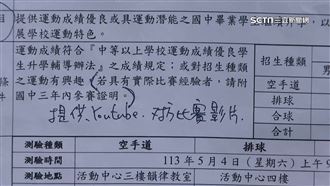 提供運動成績優良或具運動潛能之國中畢業學
展學校運動特色。
SETN 三立新聞網
運動成績符合『中等以上學校運動成績優良學
生升學輔導辦法』之成績規定;或對招生種類
之運動有興趣(若具有實際比賽經驗者,請附
國中三年內參賽證明。)
提供Youtube 比賽影片.
件
招生種類
男
空手道
排球
合球
合計
測驗種類 空手道 排球
測驗時間 113 年 5 月 4 日(星期六)上午
測驗地點 活動中心三樓韻律教室 活動中心四樓